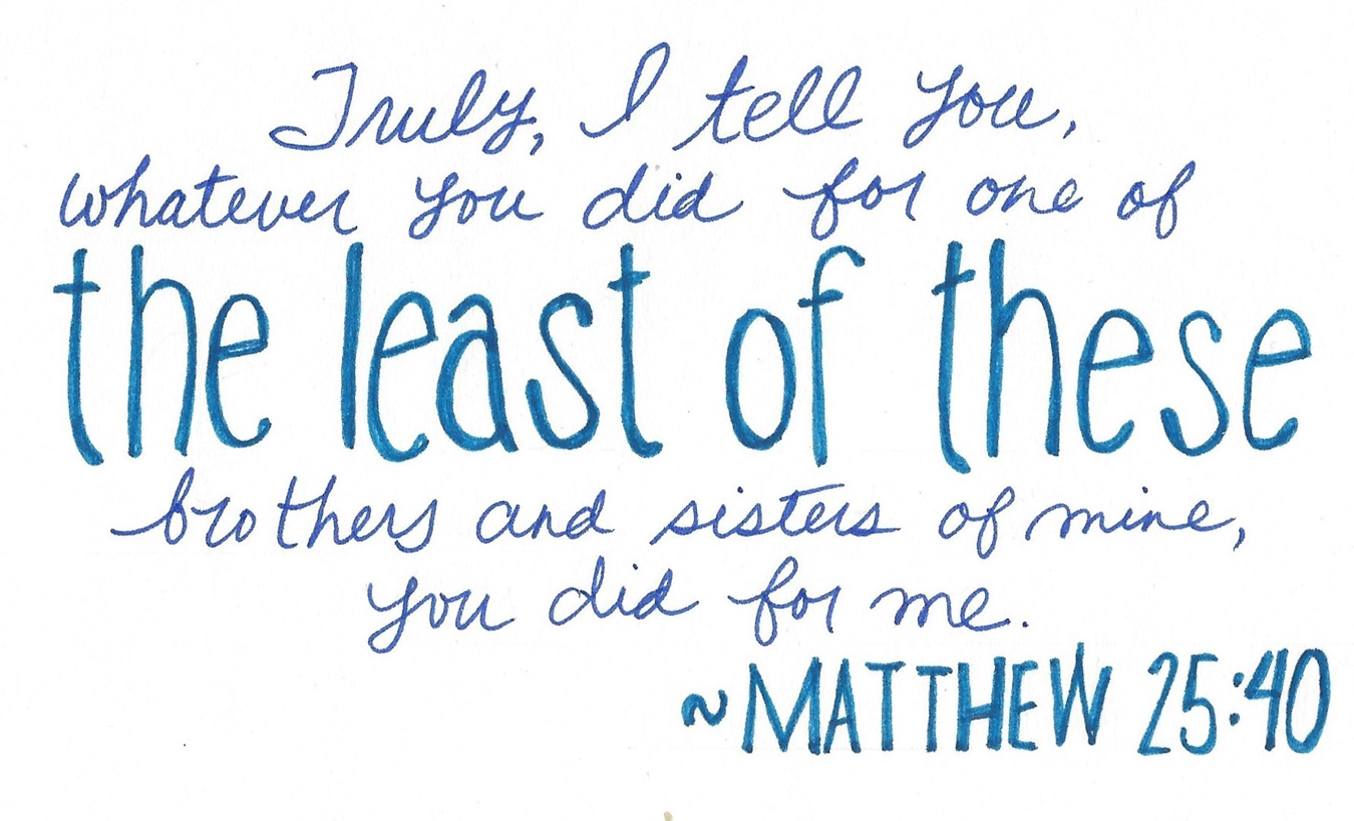 Truly, I tell you,
whatever you did for one of
the least of these
brothers and sisters of mine,
you did for me.
~MATTHEW 25:40